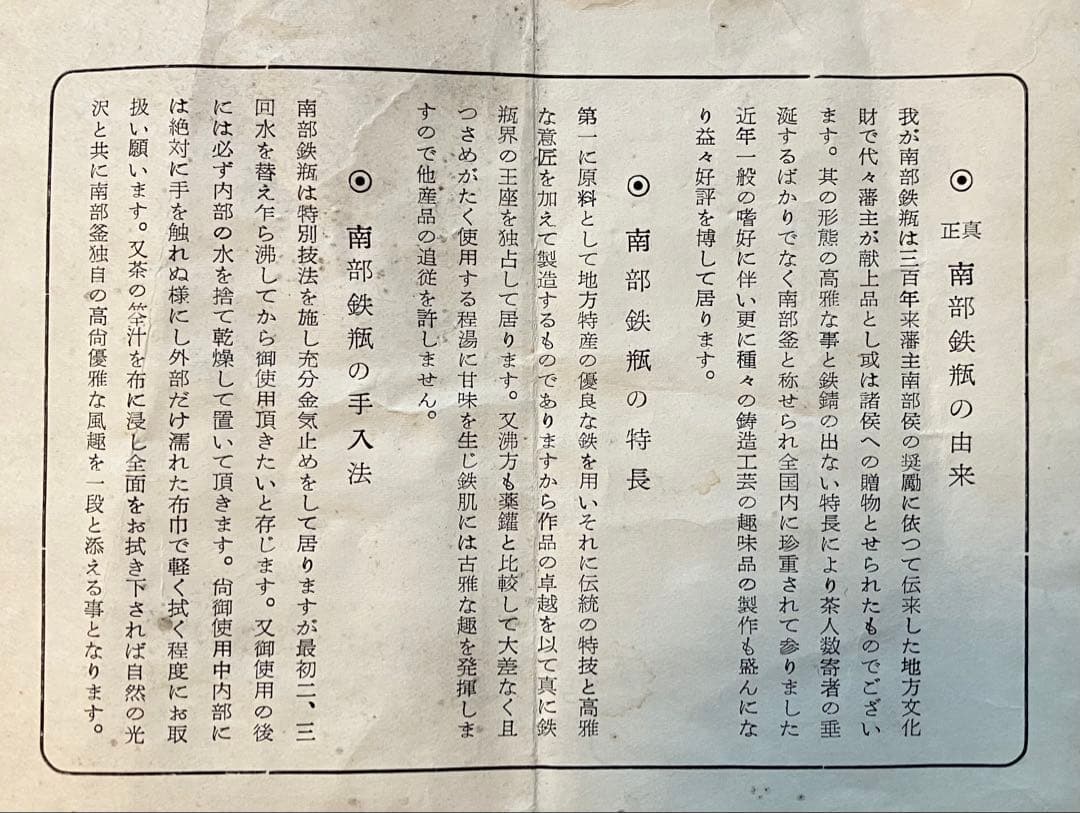 ◉ 真正 南部鉄瓶の由来
我が南部鉄瓶は三百年来藩主南部侯の奨励に依つて伝来した地方文化
財で代々藩主が献上品とし或は諸侯への贈物とせられたものでござい
ます。其の形態の高雅な事と鉄錆の出ない特長により茶人数寄者の垂
涎するばかりでなく南部釜と称せられ全国内に珍重されて参りました
近年一般の嗜好に伴い更に種々の鋳造工芸の趣味品の製作も盛んにな
り益々好評を博して居ります。
◉ 南部鉄瓶の特長
第一に原料として地方特産の優良な鉄を用いそれに伝統の特技と高雅
な意匠を加えて製造するものでありますから作品の卓越を以て真に鉄
瓶界の王座を独占して居ります。又沸方も薬鑵と比較して大差なく且
つさめがたく使用する程湯に甘味を生じ鉄肌には古雅な趣を発揮しま
すので他産品の追従を許しません。
◉ 南部鉄瓶の手入法
南部鉄瓶は特別技法を施し充分金気止めをして居りますが最初二、三
回水を替え乍ら沸してから御使用頂きたいと存じます。又御使用の後
には必ず内部の水を捨て乾燥して置いて頂きます。尚御使用中内部に
は絶対に手を触れぬ様にし外部だけ濡れた布巾で軽く拭く程度にお取
扱い願います。又茶の汁を布に浸し全面をお拭き下されば自然の光
沢と共に南部釜独自の高尚優雅な風趣を一段と添える事となります。